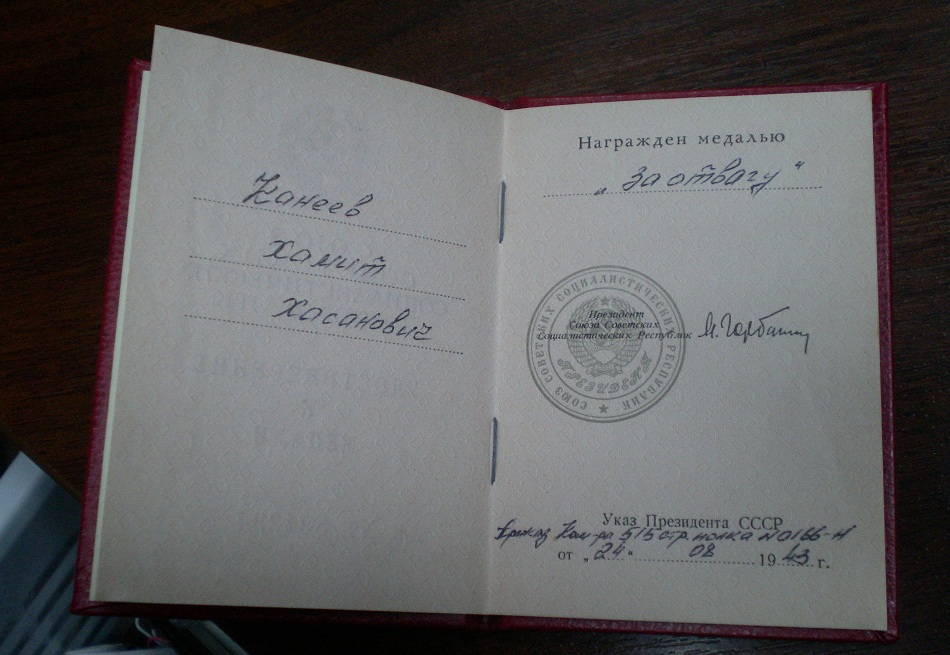 Канеев
Хамит
Хасанович
Награжден медалью
„За отвагу“
СОЮЗ СОВЕТСКИХ СОЦИАЛИСТИЧЕСКИХ РЕСПУБЛИК
Президент
Союза Советских
Социалистических Республик М. Горбачев
ПРЕЗИДЕНТ
Указ Президента СССР
Приказ Ком-ра 515 стр. полка №0166-н
от „24“ 08 1943 г.